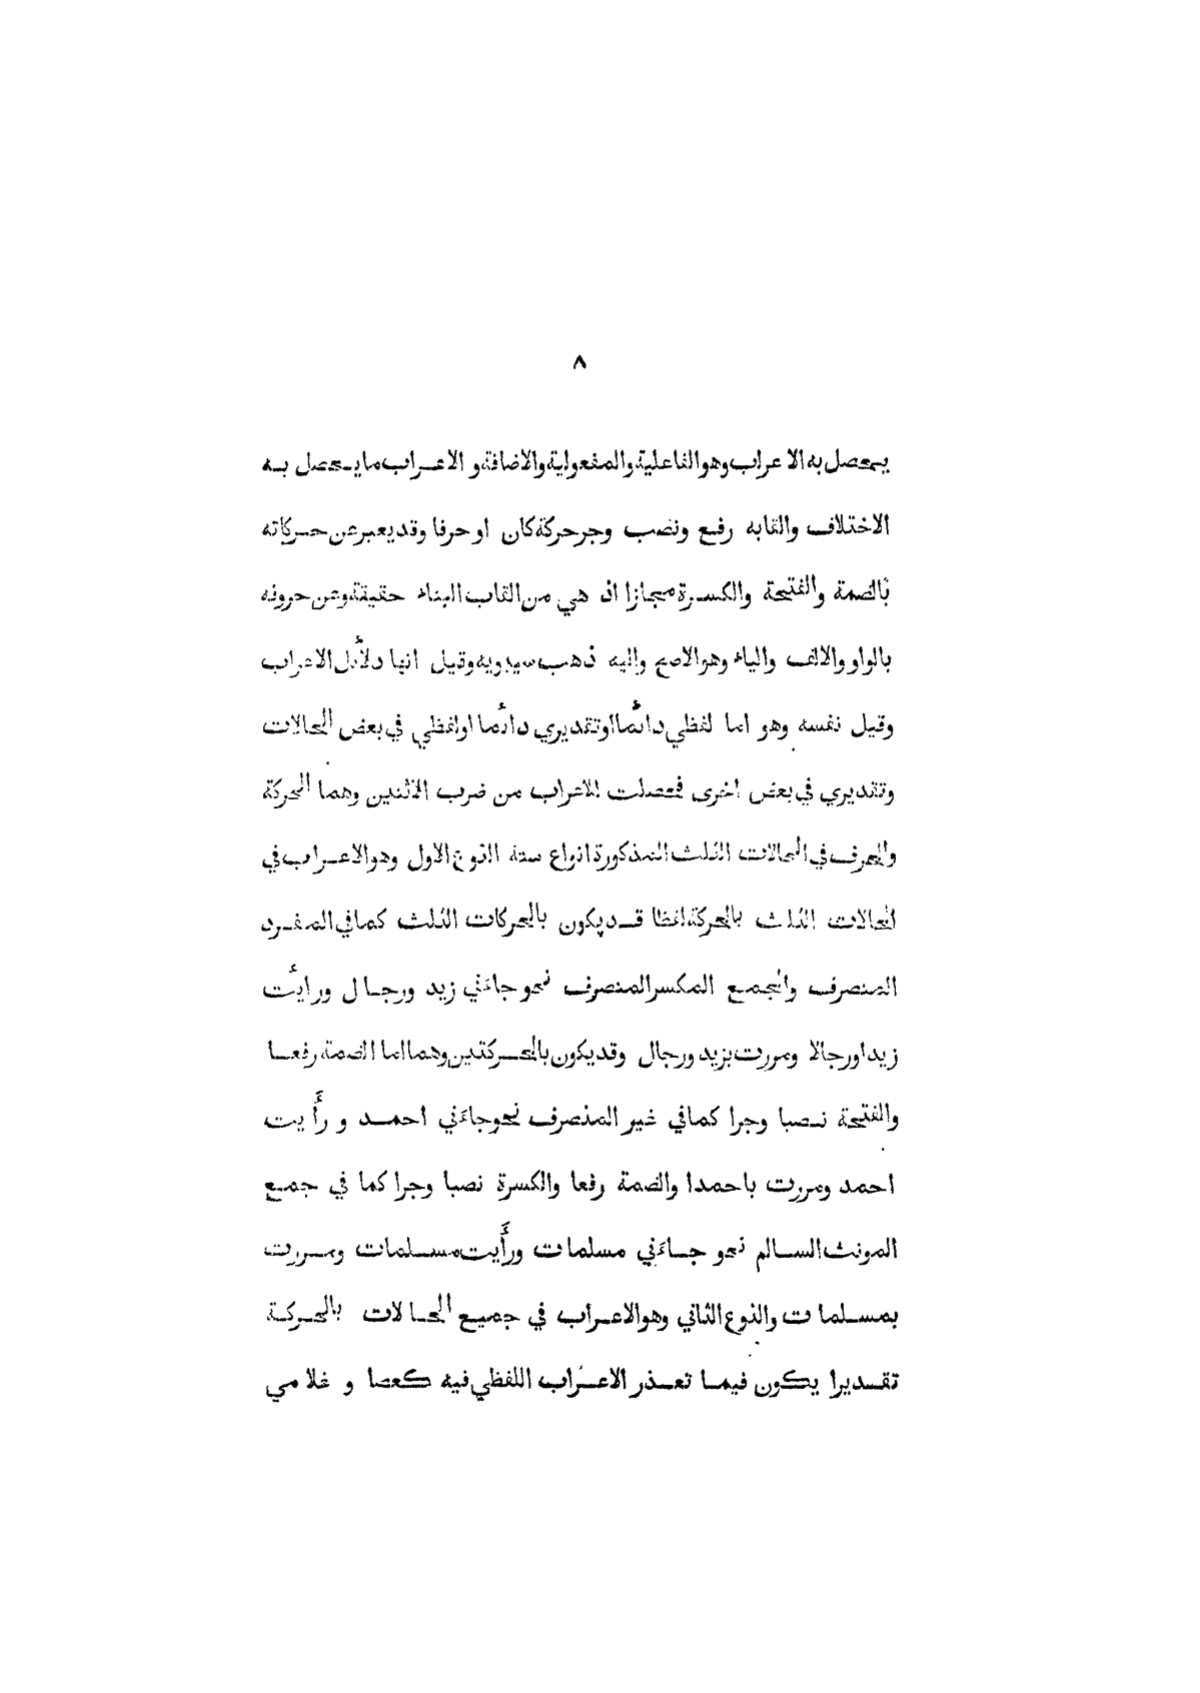 ٨
يحصل به الاعراب وهو الفاعلية والمفعولية والاضافة و الاعراب ما يحصل به
الاختلاف والقابه رفع ونصب وجر حركة كان او حرفا وقد يعبر عن حركاته
بالضمة والفتحة والكسرة مجازا اذ هي من القاب البناء حقيقة وعن حروفه
بالواو والالف والياء وهو الاصح واليه ذهب سيبويه وقيل انها دلائل الاعراب
وقيل نفسه وهو اما لفظي دائما او تقديري دائما او لفظي في بعض الحالات
وتقديري في بعض اخرى فحصلت للاعراب من ضرب الاثنين وهما الحركة
والحرف في الحالات الثلث المذكورة انواع ستة النوع الاول وهو الاعراب في
الحالات الثلث بالحركة لفظا قد يكون بالحركات الثلث كما في المفرد
المنصرف والجمع المكسر المنصرف نحو جاءني زيد ورجال ورائت
زيدا ورجالا ومررت بزيد ورجال وقد يكون بالحركتين وهما اما الضمة رفعا
والفتحة نصبا وجرا كما في غير المنصرف نحو جاءني احمد و رأيت
احمد ومررت باحمدا والضمة رفعا والكسرة نصبا وجرا كما في جميع
المونث السالم نحو جاءني مسلمات ورأيت مسلمات ومررت
بمسلمات والنوع الثاني وهو الاعراب في جميع الحالات بالحركة
تقديرا يكون فيما تعذر الاعراب اللفظي فيه كعصا و غلامي